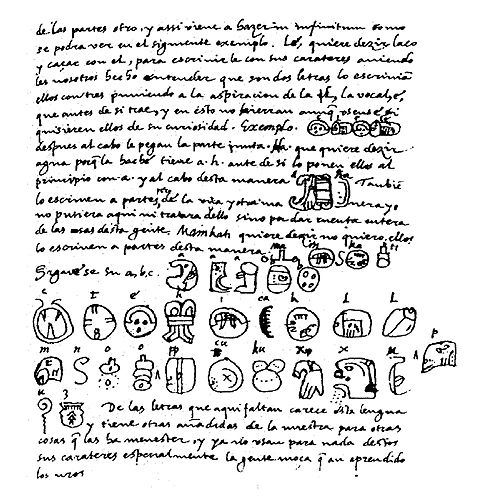 de las partes otro, y assi viene a hazer in infinitum como
se podra ver en el siguiente exemplo. Lé, quiere dezir laço
y caçar con el, para escrivirle con sus carateres aviendo
les nosotros hecho entender que son dos letras lo escrivian
ellos con tres puniendo a la aspiracion de la l, la vocal, é,
que antes de si trae, y en esto no hierran aunq usense, si
quisieren ellos de su curiosidad. Exemplo.
despues al cabo le pegan la parte junta. Ha que quiere dezir
agua porq la hache tiene a. h. ante de si lo ponen ellos al
principio con a. y al cabo desta manera a ha Tambie
lo escriven a partes de la una y otra ma nera yo
no pusiera aqui ni tratara dello sino por dar cuenta entera
de las cosas desta gente. Mamkati quiere dezir no quiero, ellos
lo escriven a partes desta manera ma i n ka ti
Siguese su a, b, c. a a a b b
c t é h i ca k l l
m n o o pp cu ku x x u p
u z De las letras que aqui faltan carece esta lengua
y tiene otras añadidas de la nuestra para otras
cosas q las ha menester, y ya no usan para nada destos
sus carateres especialmente la gente moça q an aprendido
los nros